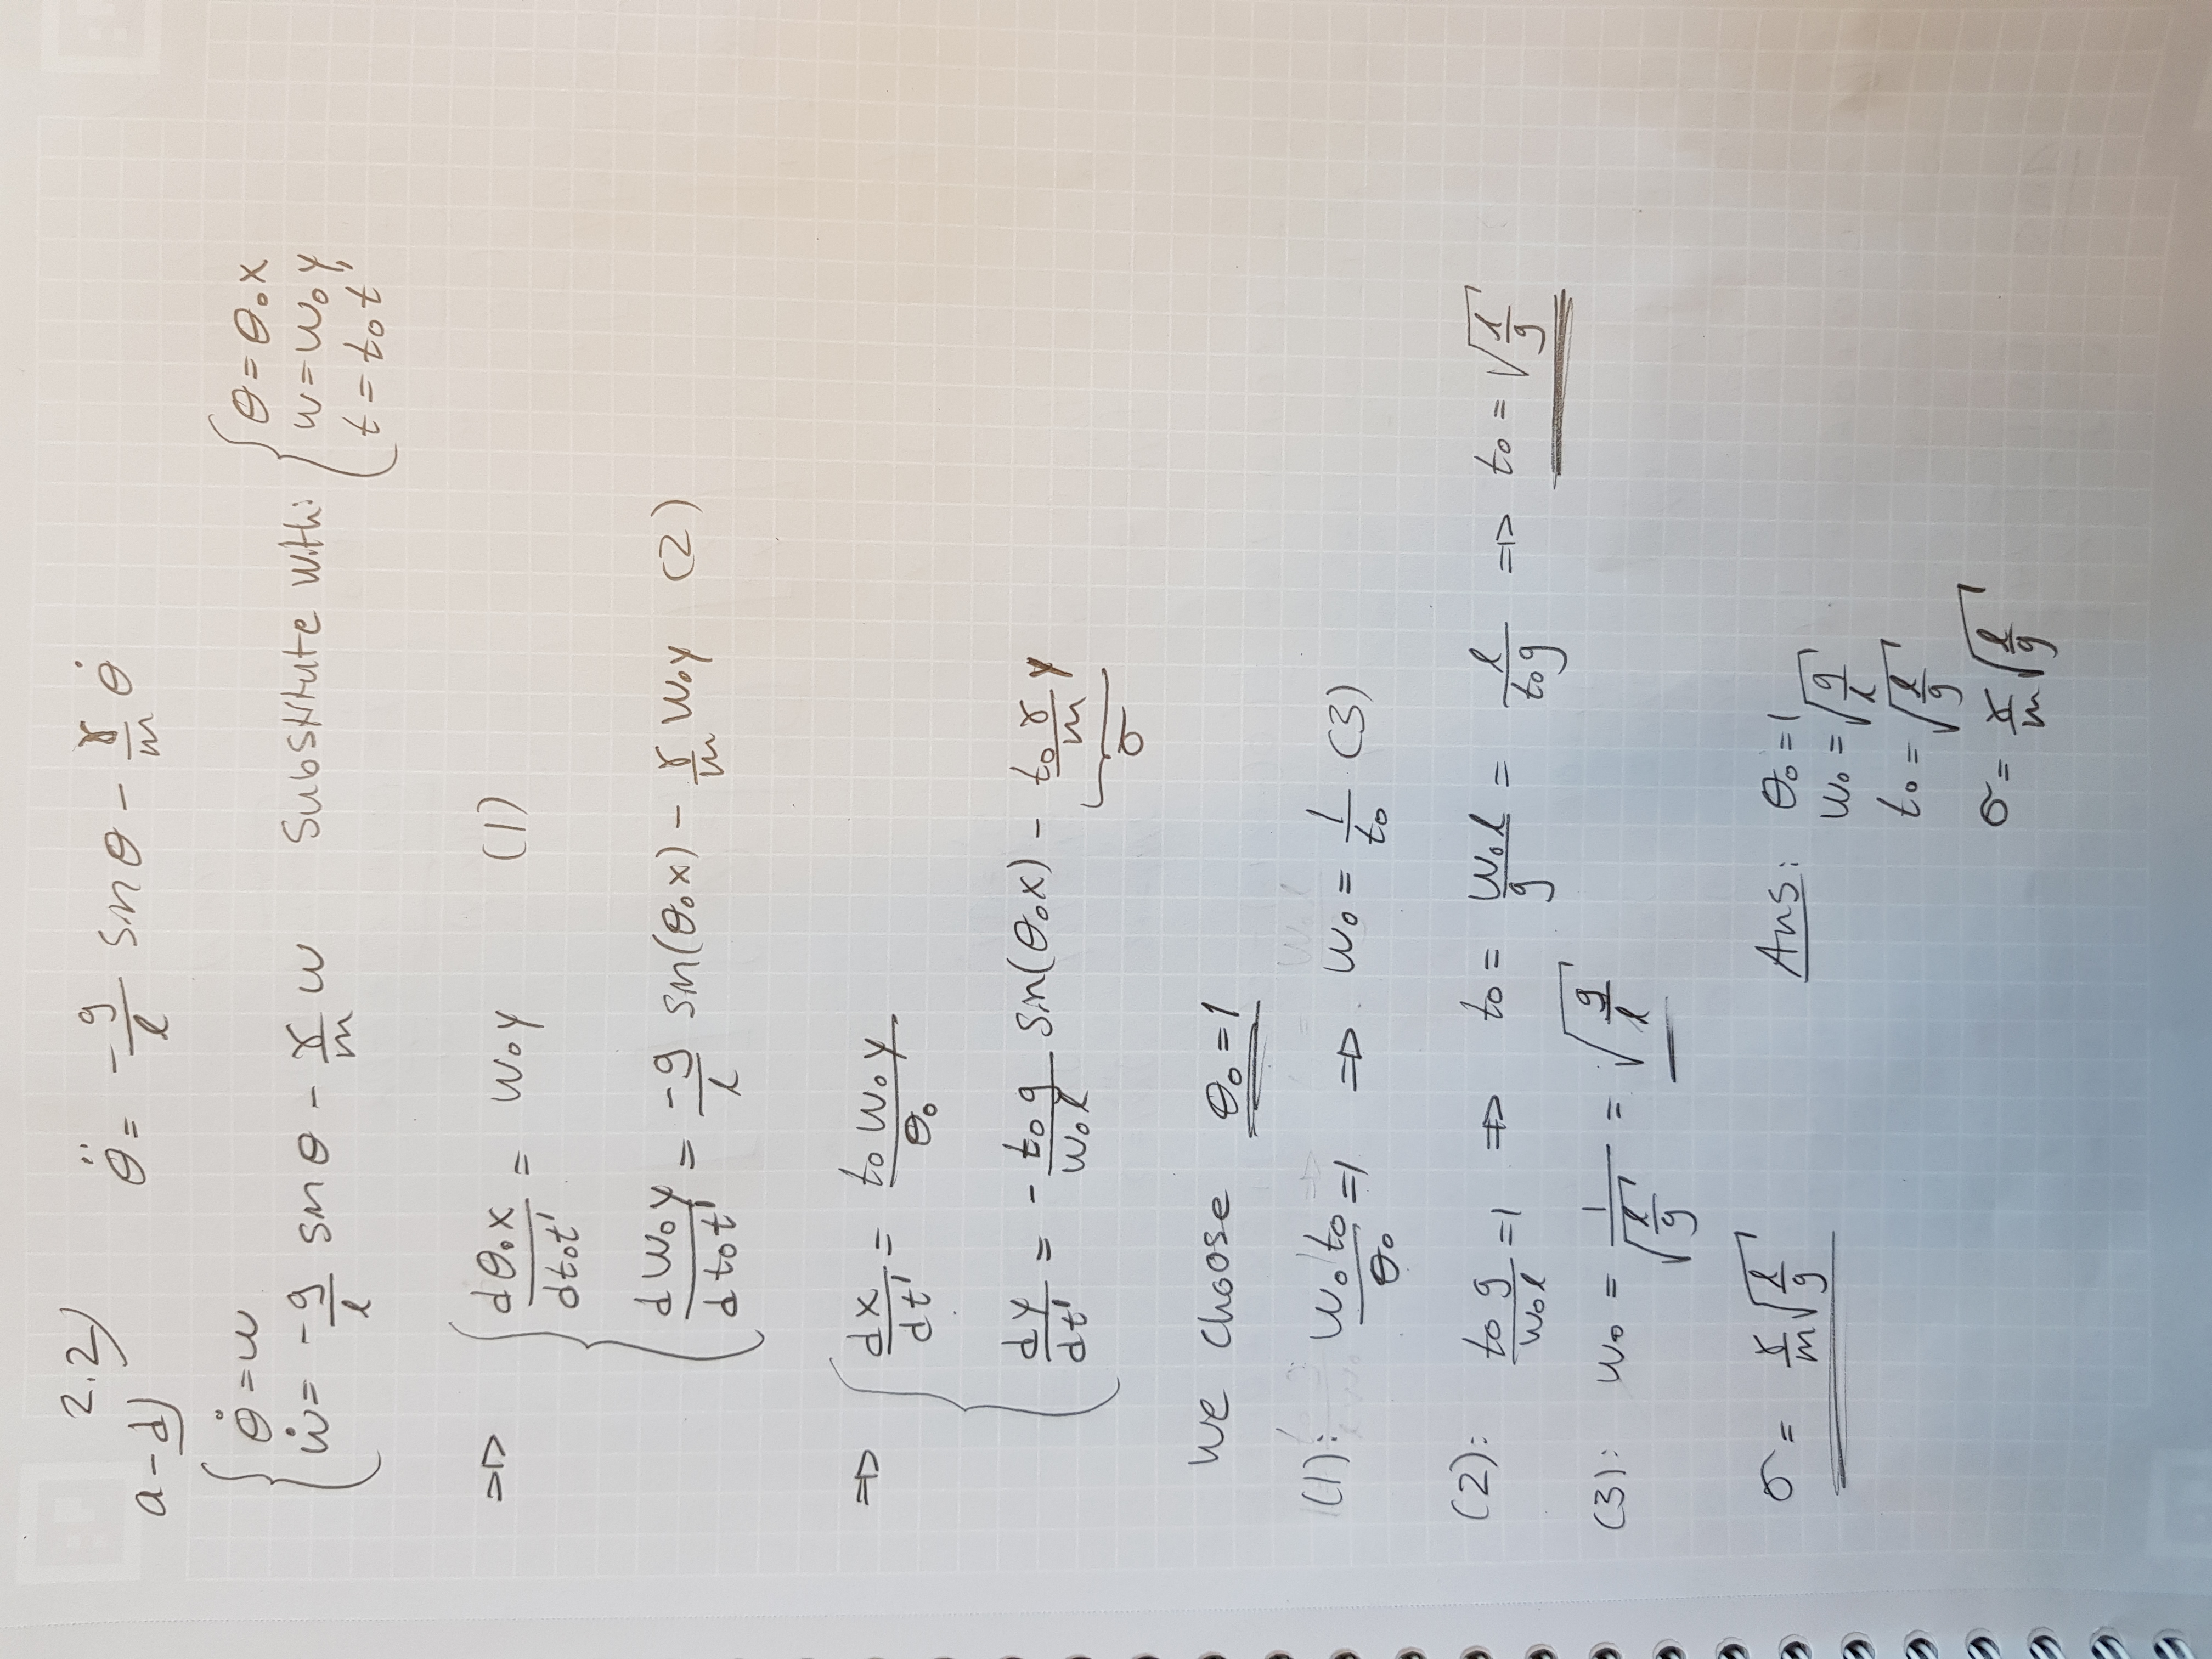 2.2)
a-d) θ̈ = -g/l sin θ - γ/m θ̇
{ θ̇ = w
ẇ = -g/l sin θ - γ/m w Substitute with: { θ = θ₀x
w = w₀y
t = t₀t'
⇒ { dθ₀x/dt₀t' = w₀y (1)
dw₀y/dt₀t' = -g/l sin(θ₀x) - γ/m w₀y (2)
⇒ { dx/dt' = t₀w₀y/θ₀
dy/dt' = - t₀g/w₀l sin(θ₀x) - t₀γ/m y
σ
We choose θ₀=1
(1): w₀t₀/θ₀ = 1 ⇒ w₀ = 1/t₀ (3)
(2): t₀g/w₀l = 1 ⇒ t₀ = w₀l/g = l/t₀g ⇒ t₀ = √(l/g)
(3): w₀ = 1/√(l/g) = √(g/l)
σ = γ/m √(l/g)
Ans: θ₀ = 1
w₀ = √(g/l)
t₀ = √(l/g)
σ = γ/m √(l/g)